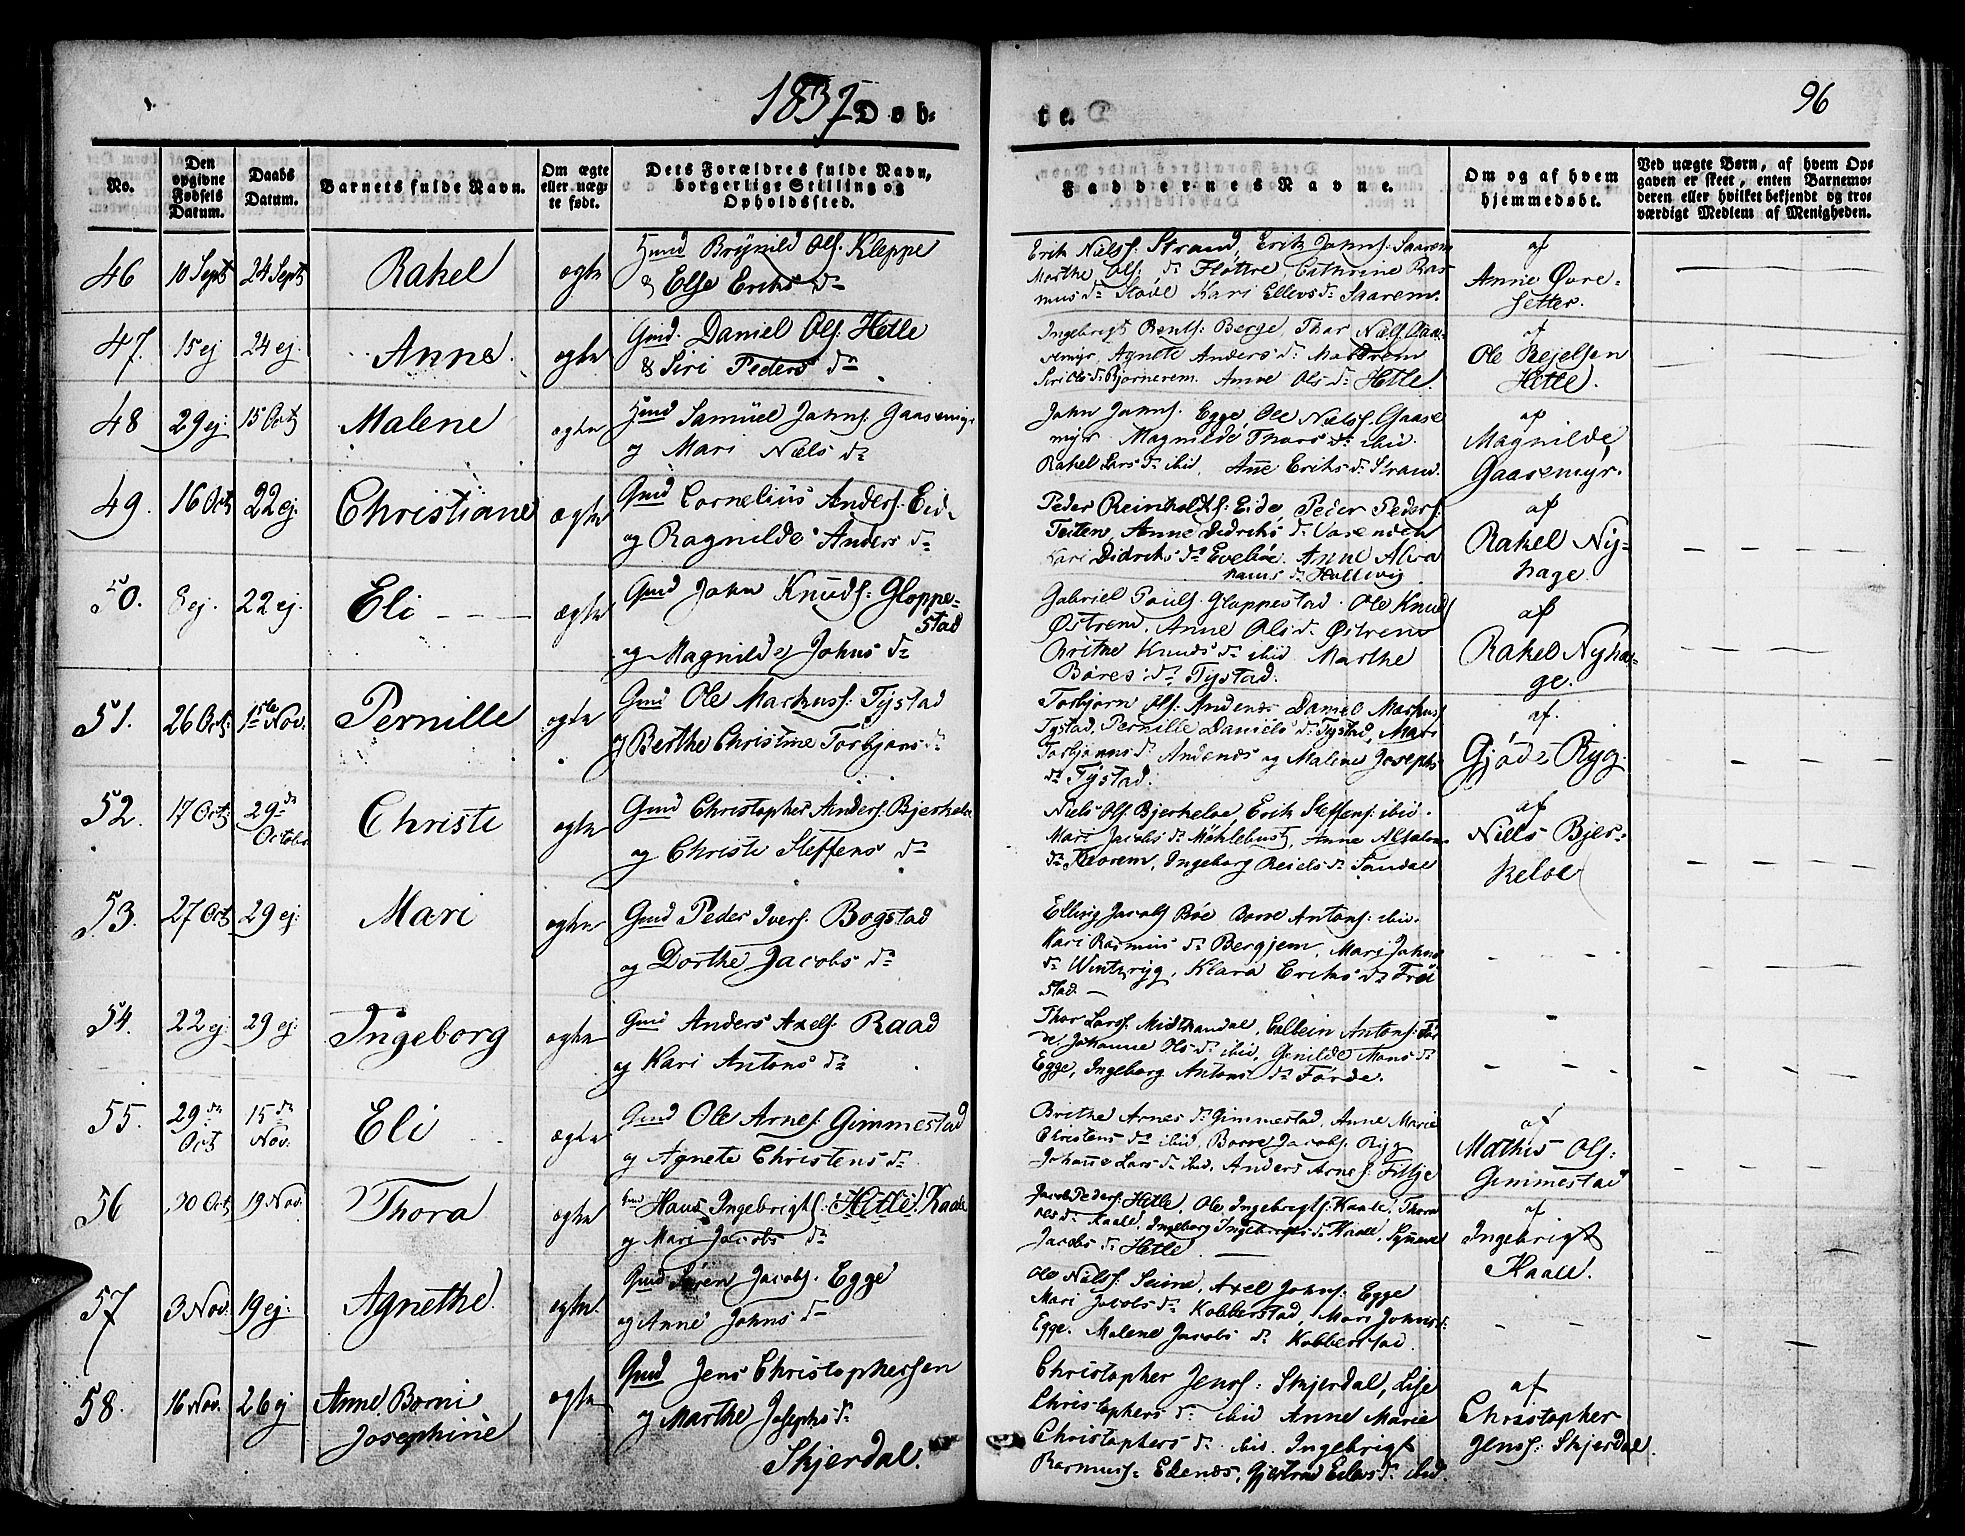 1837 Døb=
te.
96
No.
Den opgivne Fødsels Datum.
Daabs Datum.
Barnets fulde Navn.
Om ægte eller uæg- te født.
Dets Forældres fulde Navn, borgerlige Stilling og Opholdssted.
Faddernes Navne.
Om og af hvem hjemmedøbt.
Ved uægte Børn, af hvem Op- gaven er skeet, enten Barnemo- deren eller hvilket bekjendt og tro- værdigt Medlem af Menigheden.
46 10 Sept 24 Sept Rakel ægte
Gmd Brynild Ols. Kleppe
& Else Eriks dr
Erik Niels. Strand, Erik Johns. Saarem
Marthe Ols. dr Flottre, Cathrine Ras-
mus dr Støve Kari Ellevs dr Saarem.
af
Anne Øvre-
setter.
47. 15 ej 24 ej. Anne. ægte
Gmd. Daniel Ols. Hetle
& Siri Peders dr
Ingebrigt Bents. Berge, Thor Niels. Gaa-
semyr, Agnete Anders dr Moldrem
Siri Ols dr Bjørnerem. Anne Ols dr Hetle.
af
Ole Rejelsen
Hetle.
48 29 ej. 15 Oct Malene ægte
Gmd Samuel Johns. Gaasemyr
og Mari Niels dr
John Johns. Egge, Ole Niels. Gaase
myr Magnilde Thors dr ibid.
Rakel Lars dr ibid, Ane Eriks dr Strand.
af
Magnilde
Gaasemyr.
49. 16 Oct 22 ej. Christiane ægte
Gmd Cornelius Anders. Eide
og Ragnilde Anders dr
Peder Reinholdts. Eide Peder Peders.
Teiten, Anne Didriks dr Vareneen
Kari Didriks dr Evebøe. Anne Abra
hams dr Hollevig
af
Rakel Ny-
hage.
50. 8 ej. 22 ej. Eli ægte
Gmd John Knuds. Gloppe-
stad
og Magnilde Johns dr
Gabriel Pouls. Gloppestad. Ole Knuds
Østrem. Anne Ols dr Østrem
Brithe Knuds dr ibid Marthe
Børes dr Tystad.
af
Rakel Nyha-
ge.
51. 26 Oct. 1ste Nov. Pernille ægte
Gmd Ole Markuss. Tystad
og Berthe Christine Torbjørns dr
Torbjørn Ols. Andenes Daniel Markus
Tystad, Pernille Daniels dr Tystad, Mari
Torbjørns dr Andenes og Malene Josephs
dr Tystad.
af.
Gjøde Ryg.
52. 17 Oct 29 de October Christi ægte
Gmd Christopher Anders. Bjerkeloe
og Christi Steffens dr
Niels Ols. Bjerkeloe, Erik Steffens. ibid.
Mari Jacobs dr Møhlebust, Anne Absalons
dr Flørem, Ingeborg Reiels dr Sandal
af
Niels Bjer-
keloe
53. 27 Oct 29 ej. Mari ægte
Gmd Peder Ivers. Bogstad
og Dorthe Jacobs dr
Elling Jacobs Bøe Børre Antons. ibid.
Kari Rasmus dr Bergjem, Mari Johns
dr Winteryg, Klara Eriks dr Frøi
stad
54. 22 ej. 29 ej. Ingeborg ægte
Gmd Anders Axels. Raad
og Kari Antons dr
Thor Larss. Midthandal, Antons. Før
de, Johanne Ols dr ibid, Gunilde Mons dr
Egge, Ingeborg Antons dr Førde.
55. 29 de Oct 15 de Nov. Eli ægte
Gmd Ole Arnes. Gimmestad
og Agnete Christens dr
Brithe Arnes dr Gimmestad, Anne Marie
Christens dr ibid, Børre Jacobs. Ryg
Johanne Lars dr ibid. Anders Arnes. Fitje
af
Mathis Ols:
Gimmestad
56 30 Oct 19 Nov. Thora ægte
Gmd Hans Ingebrigts. Hetle. Kaale
og Mari Jacobs dr
Jacob Peders. Hetle, Ole Ingebrigts. Kaale, Thora
Ols dr Kaale, Ingeborg Ingebrigts dr Kaale, Synneve
Jacobs dr Hetle
af
Ingebrigt
Kaale.
57 3 Nov. 19 ej. Agnethe. ægte
Gmd Søren Jacobs. Egge
og Anne Johns dr
Ole Niels. Seime, Axel Johns. Egge
Mari Jacobs dr Kobberstad, Mari Johns dr
Egge. Malene Jacobs dr Kobberstad
58. 16 Nov. 26 ej Anne Borni
Josephine ægte
Gmd Jens Christophersen
og Marthe Josephs dr
Skjerdal.
Christopher Jenss: Skjerdal, Lise
Christophers dr ibid Anne Marie
Christophers dr ibid. Ingebrigt
Rasmuss. Edenæs, Gjertrud Eilevs dr ibid.
af
Christopher
Jenss: Skjerdal.